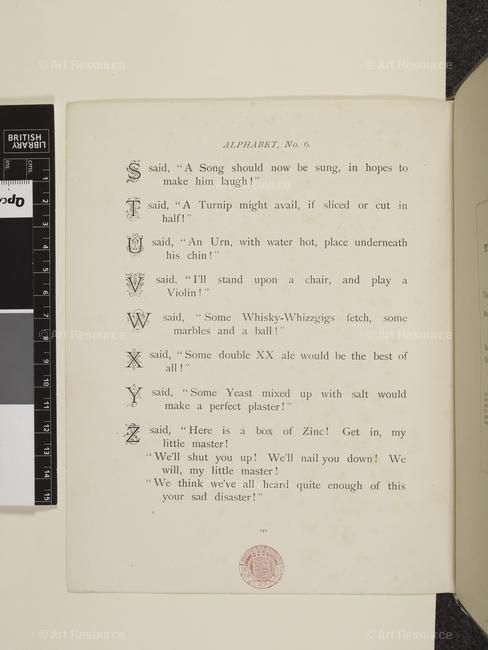 © Art Resource
© Art Resource
BRITISH
LIBRARY
cms.
ins.
1
2
3
4
5
6
7
8
9
10
11
12
13
14
15
ALPHABET, No. 6.
S said, "A Song should now be sung, in hopes to
make him laugh!"
T said, "A Turnip might avail, if sliced or cut in
half!"
U said, "An Urn, with water hot, place underneath
his chin!"
V said, "I'll stand upon a chair, and play a
Violin!"
W said, "Some Whisky-Whizzgigs fetch, some
marbles and a ball!"
X said, "Some double XX ale would be the best of
all!"
Y said, "Some Yeast mixed up with salt would
make a perfect plaster!"
Z said, "Here is a box of Zinc! Get in, my
little master!
"We'll shut you up! We'll nail you down! We
will, my little master!
"We think we've all heard quite enough of this
your sad disaster!"
© Art Resource
© Art Resource
© Art Resource
© Art Resource